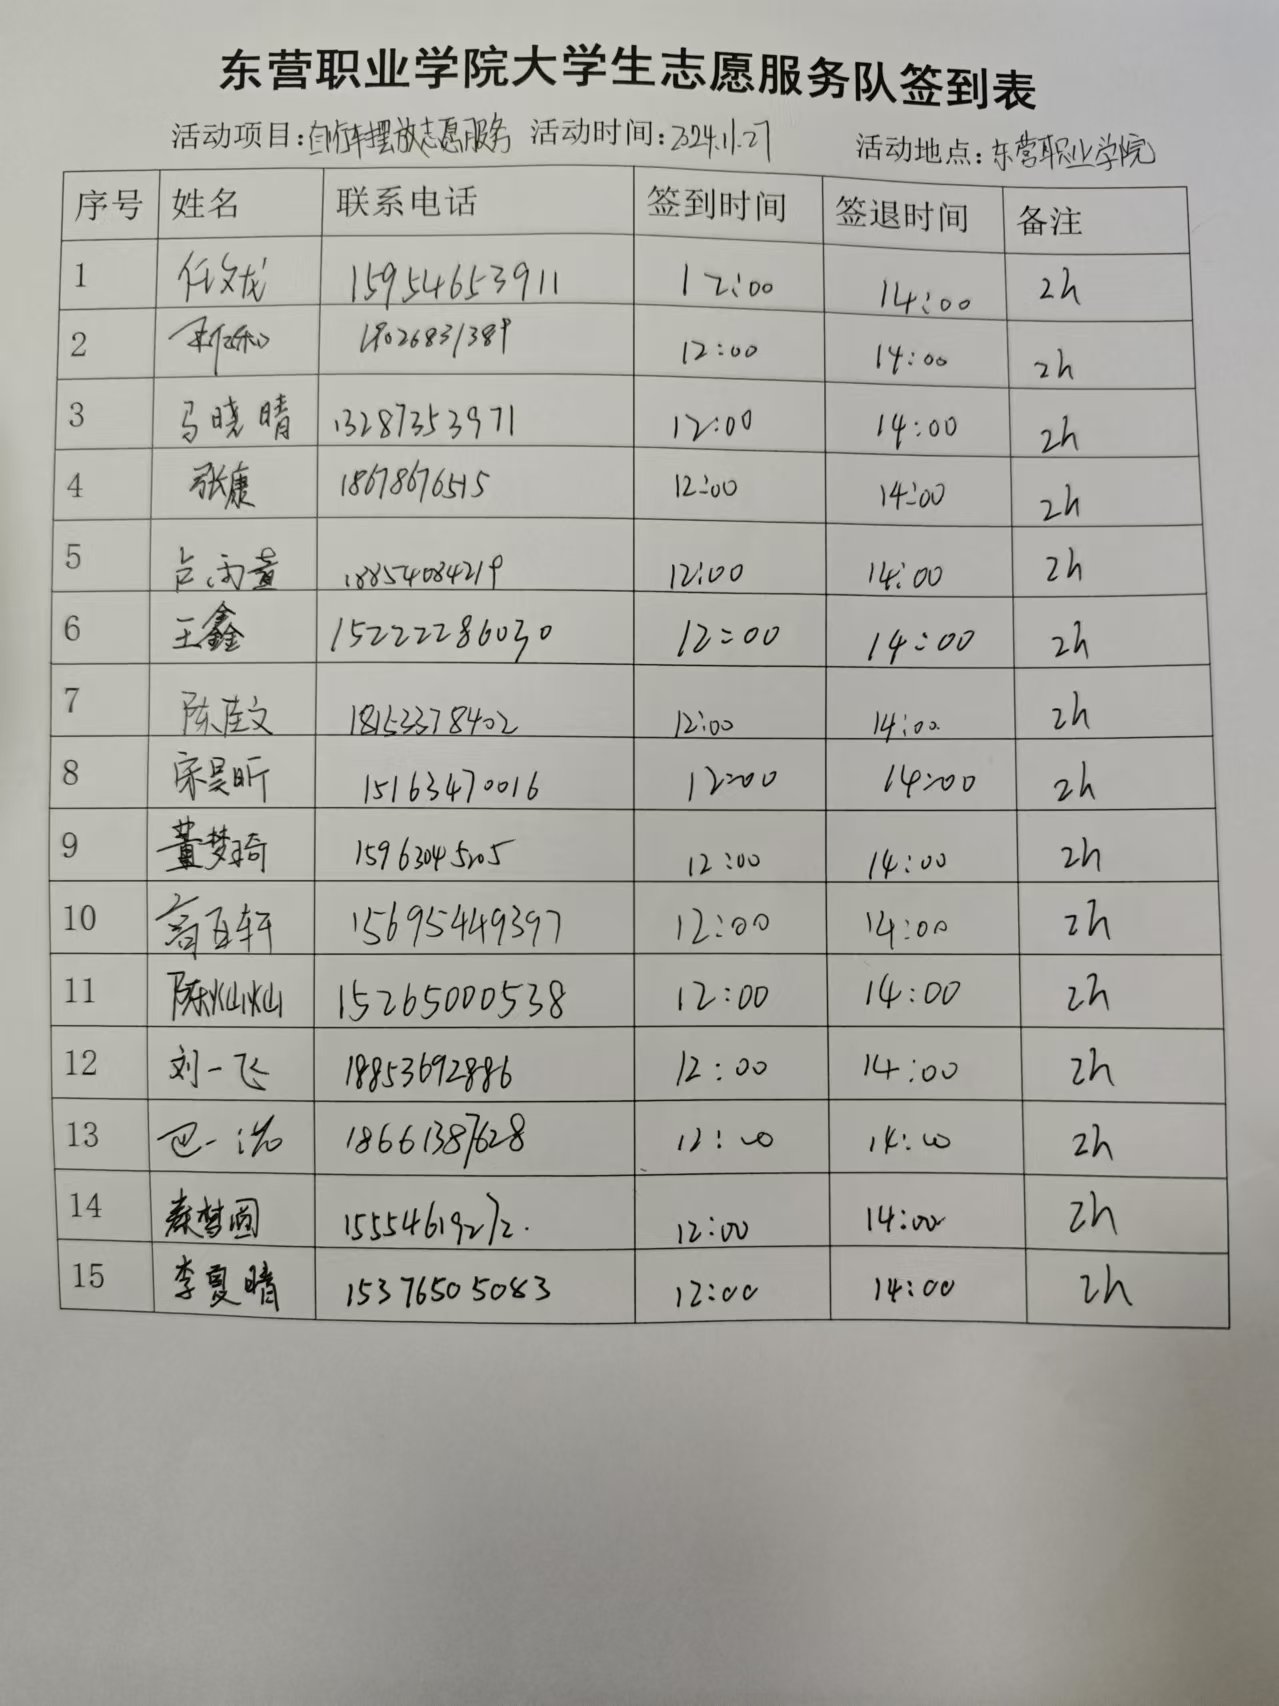 东营职业学院大学生志愿服务队签到表
活动项目:自行车摆放志愿服务 活动时间:2024.11.27 活动地点:东营职业学院
序号 姓名 联系电话 签到时间 签退时间 备注
1 任文龙 15954653911 12:00 14:00 2h
2 12:00 14:00 2h
3 马晓晴 13287353971 12:00 14:00 2h
4 张康 18678676515 12:00 14:00 2h
5 18854084219 12:00 14:00 2h
6 王鑫 15222286030 12:00 14:00 2h
7 陈佳文 18153378402 12:00 14:00 2h
8 宋昊昕 15163470016 12:00 14:00 2h
9 董梦琦 15963045205 12:00 14:00 2h
10 高百轩 15695449397 12:00 14:00 2h
11 陈灿灿 15265000538 12:00 14:00 2h
12 刘一飞 18853692886 12:00 14:00 2h
13 巴一 18661387628 12:00 14:00 2h
14 秦梦圆 15554619272. 12:00 14:00 2h
15 李夏晴 15376505083 12:00 14:00 2h